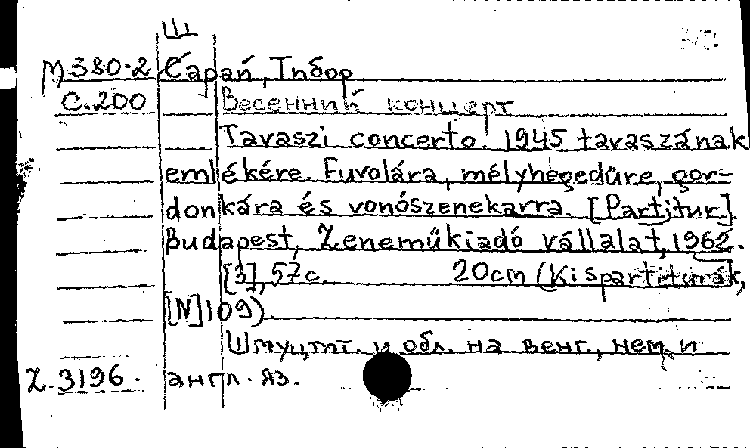 Ш
М 380-2 Сарай, Тибор
С.200 Весенний концерт
Tavaszi concerto. 1945 tavaszának
emlékére. Fuvolára, mélyhegedüre, gor-
donkára és vonószenekarra. [Partitur].
Budapest, Zeneműkiadó vállalat, 1962.
[3], 57 с. 20cm (Kispartiturák,
[N] 109).
Шмуцтит. и обл. на венг., нем. и
Z. 3196. англ. яз.